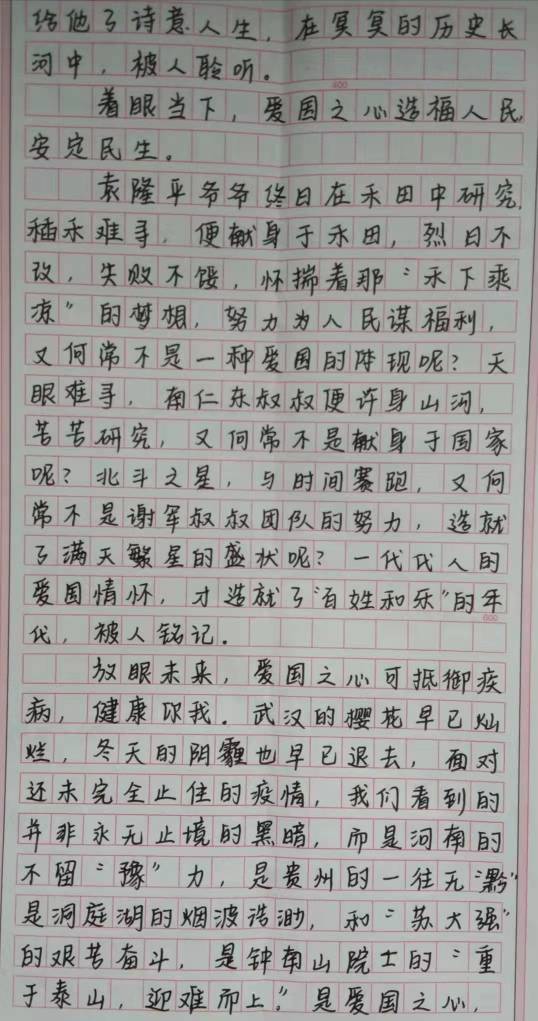 给他了诗意人生，在冥冥的历史长
河中，被人聆听。
400
着眼当下，爱国之心造福人民，
安定民生。
袁隆平爷爷终日在禾田中研究，
稻禾难寻，便献身于禾田，烈日不
改，失败不馁，怀揣着那“禾下乘
凉”的梦想，努力为人民谋福利，
又何常不是一种爱国的体现呢？天
眼难寻，南仁东叔叔便许身山河，
苦苦研究，又何常不是献身于国家
呢？北斗之星，与时间赛跑，又何
常不是谢军叔叔团队的努力，造就
了满天繁星的盛状呢？一代代人的
爱国情怀，才造就了“百姓和乐”的年
600
代，被人铭记。
放眼未来，爱国之心可抵御疾
病，健康你我。武汉的樱花早已灿
烂，冬天的阴霾也早已退去，面对
还未完全止住的疫情，我们看到的
并非永无止境的黑暗，而是河南的
不留“豫”力，是贵州的一往无“黔”
是洞庭湖的烟波浩渺，和“苏大强”
的艰苦奋斗，是钟南山院士的“重
于泰山，迎难而上”。是爱国之心，